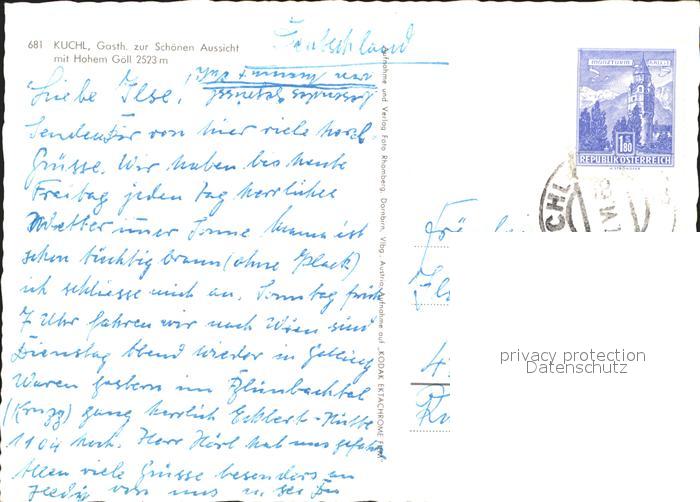 681 KUCHL, Gasth. zur Schönen Aussicht
mit Hohem Göll 2523 m
Deutschland
MÜNZTURM HALL i/T
S 1.80
REPUBLIK ÖSTERREICH
Liebe Ilse,
Senden Dir von hier viele herzl.
Grüsse. Wir haben bis heute
Freitag jeden Tag herrliches
Wetter immer Sonne Mama ist
schon tüchtig braun (ohne Glack)
ich schliesse mich an. Sonntag früh
7 Uhr fahren wir nach Wien sind
Dienstag Abend wieder in Golling
Waren gestern im
ganz herrlich Eckbert-Hütte
1104 hoch. Herr Hörl hat uns gefahren
Allen viele Grüsse besonders an
von uns
Aufnahme und Verlag Foto Rhomberg, Dornbirn, Vlbg. Austria, Aufnahme auf „KODAK EKTACHROME
Frä
Ils
4
privacy protection
Datenschutz